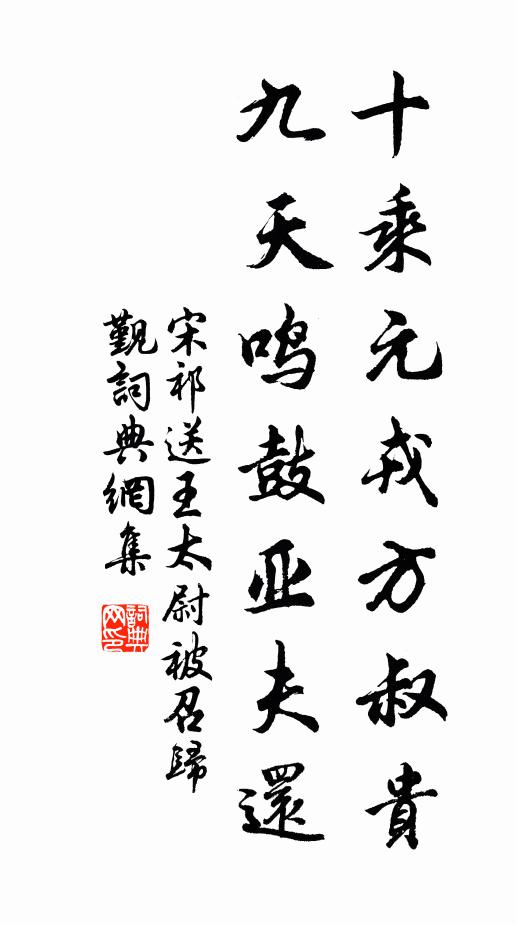 十乘元戎方叔貴
九天鸣鼓亚夫還
宋祁送王太尉被召歸
觐詞典網集
詞典网印